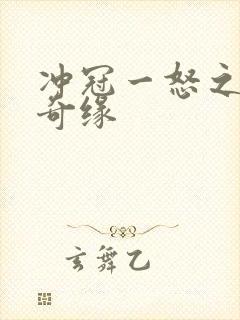 冲冠一怒之
奇缘
玄舞乙